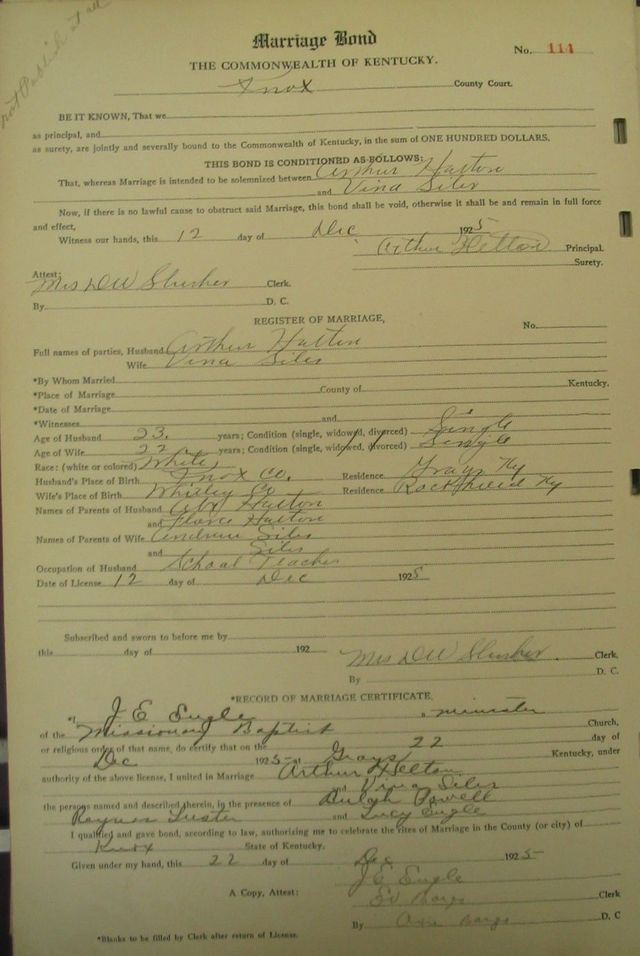 not Publish at all
Marriage Bond
No. 114
THE COMMONWEALTH OF KENTUCKY.
Knox County Court.
BE IT KNOWN, That we
as principal, and
as surety, are jointly and severally bound to the Commonwealth of Kentucky, in the sum of ONE HUNDRED DOLLARS.
THIS BOND IS CONDITIONED AS FOLLOWS:
That, whereas Marriage is intended to be solemnized between Arthur Hatton
and Vina Siler
Now, if there is no lawful cause to obstruct said Marriage, this bond shall be void, otherwise it shall be and remain in full force
and effect,
Witness our hands, this 12 day of Dec 1925
Arthur Helton Principal.
Surety.
Attest:
Mrs D W Slusher Clerk.
By D. C.
REGISTER OF MARRIAGE,
No.
Full names of parties, Husband Arthur Hatton
Wife Vina Siler
*By Whom Married
*Place of Marriage County of Kentucky.
*Date of Marriage
*Witnesses and
Age of Husband 23. years; Condition (single, widowed, divorced) Single
Age of Wife 22 years; Condition (single, widowed, divorced) Single
Race: (white or colored) White
Husband's Place of Birth Knox Co. Residence Grays Ky
Wife's Place of Birth Whitley Co Residence Rockhold Ky
Names of Parents of Husband Hatton
and Florce Hatton
Names of Parents of Wife Andrew Siler
and Siler
Occupation of Husband School Teacher
Date of License 12 day of Dec 1925
Subscribed and sworn to before me by
this day of 192
Mrs D W Slusher. Clerk,
By D. C.
*RECORD OF MARRIAGE CERTIFICATE.
*I J E Eugle, minister
of the Missionary Baptist Church,
or religious order of that name, do certify that on the 22 day of
Dec 1925 at Grays Kentucky, under
authority of the above license, I united in Marriage Arthur Helton
and Vina Siler
the persons named and described therein, in the presence of Bulah Powell
Luster and Lucy Eugle
I qualified and gave bond, according to law, authorizing me to celebrate the rites of Marriage in the County (or city) of
Knox State of Kentucky.
Given under my hand, this 22 day of Dec 1925
J E Eugle
A Copy, Attest: Ed Bargo Clerk
By Bargo D. C
*Blanks to be filled by Clerk after return of License.